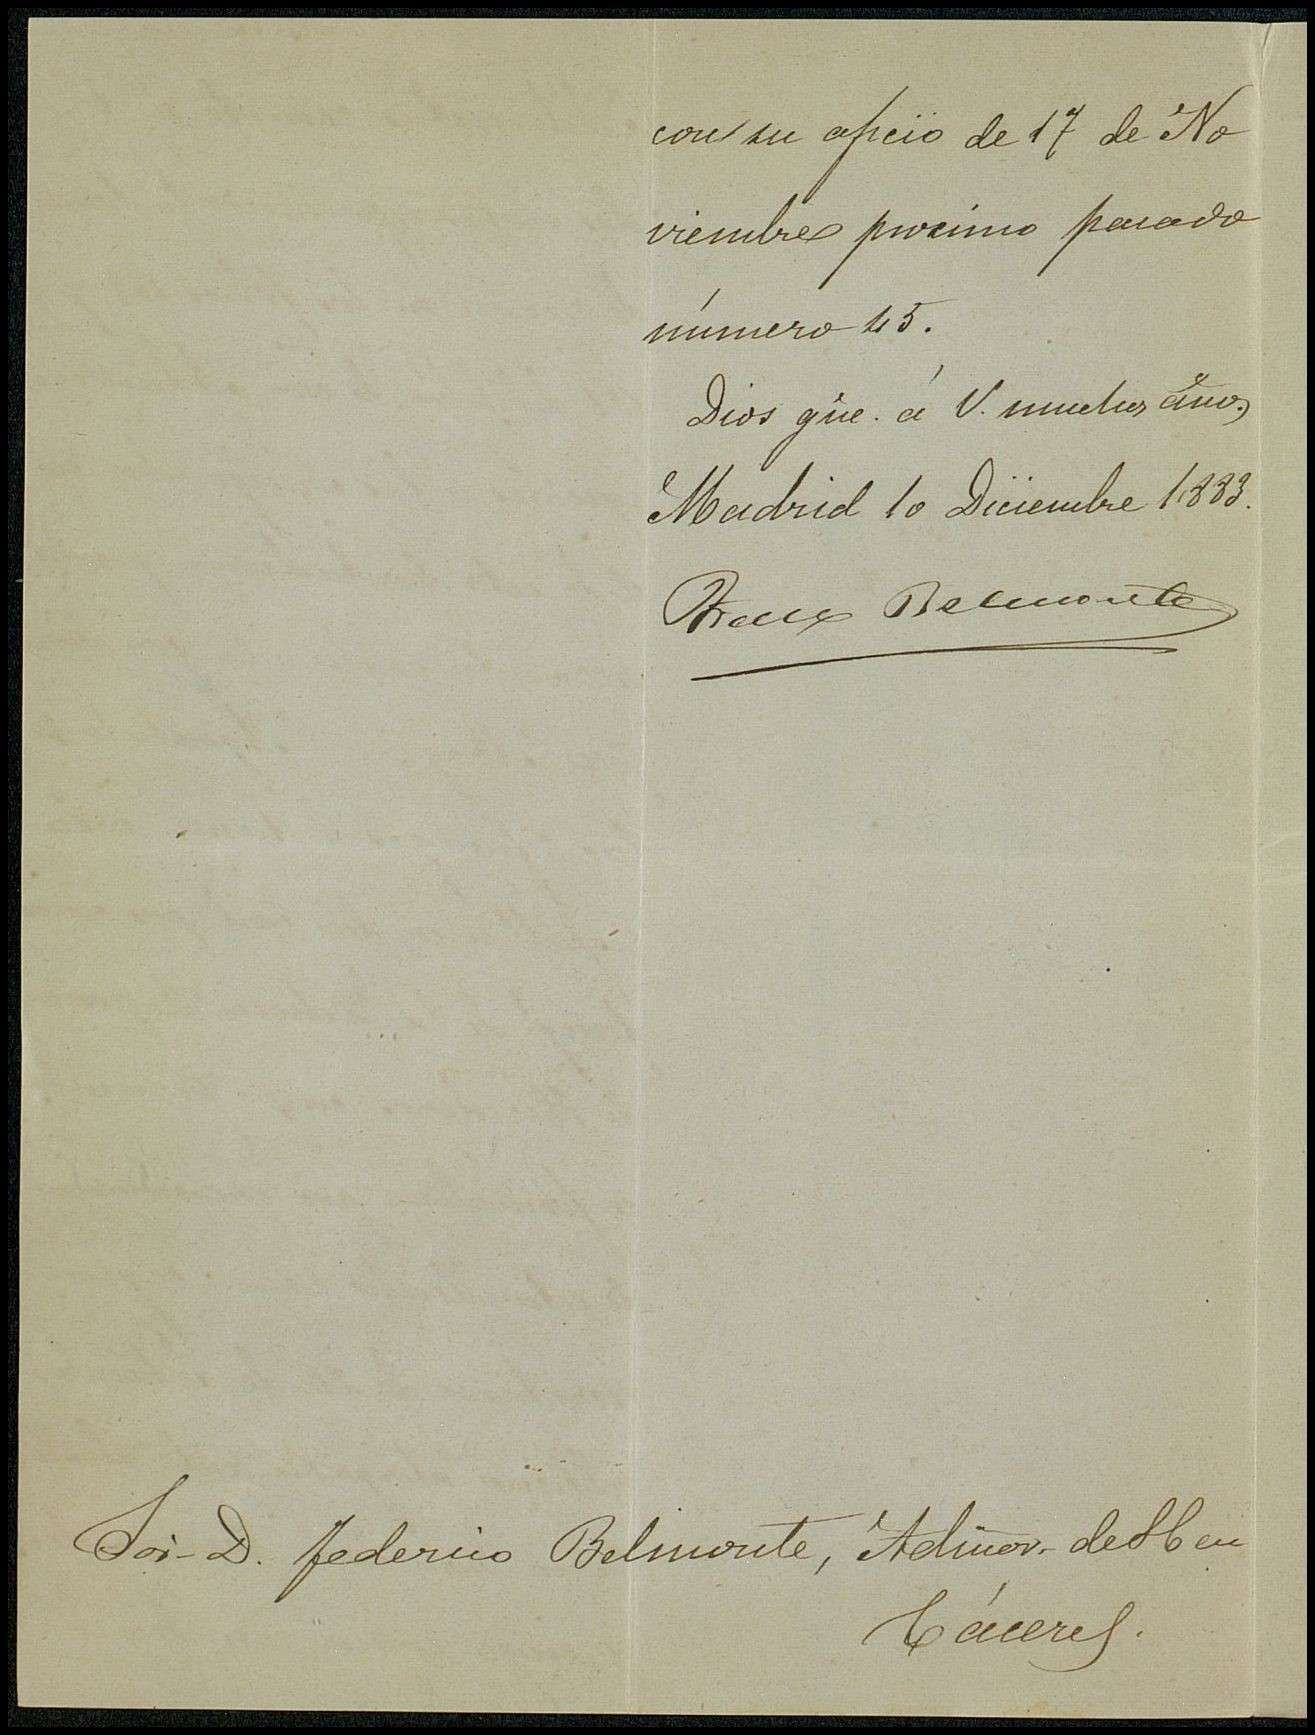 con su oficio de 17 de No
viembre proximo pasado
número 45.
Dios gūe. á V. muchos años,
Madrid 10 Diciembre 1883.
Belmonte
Sor. D. Federico Belmonte, Admor. de en
Cáceres.